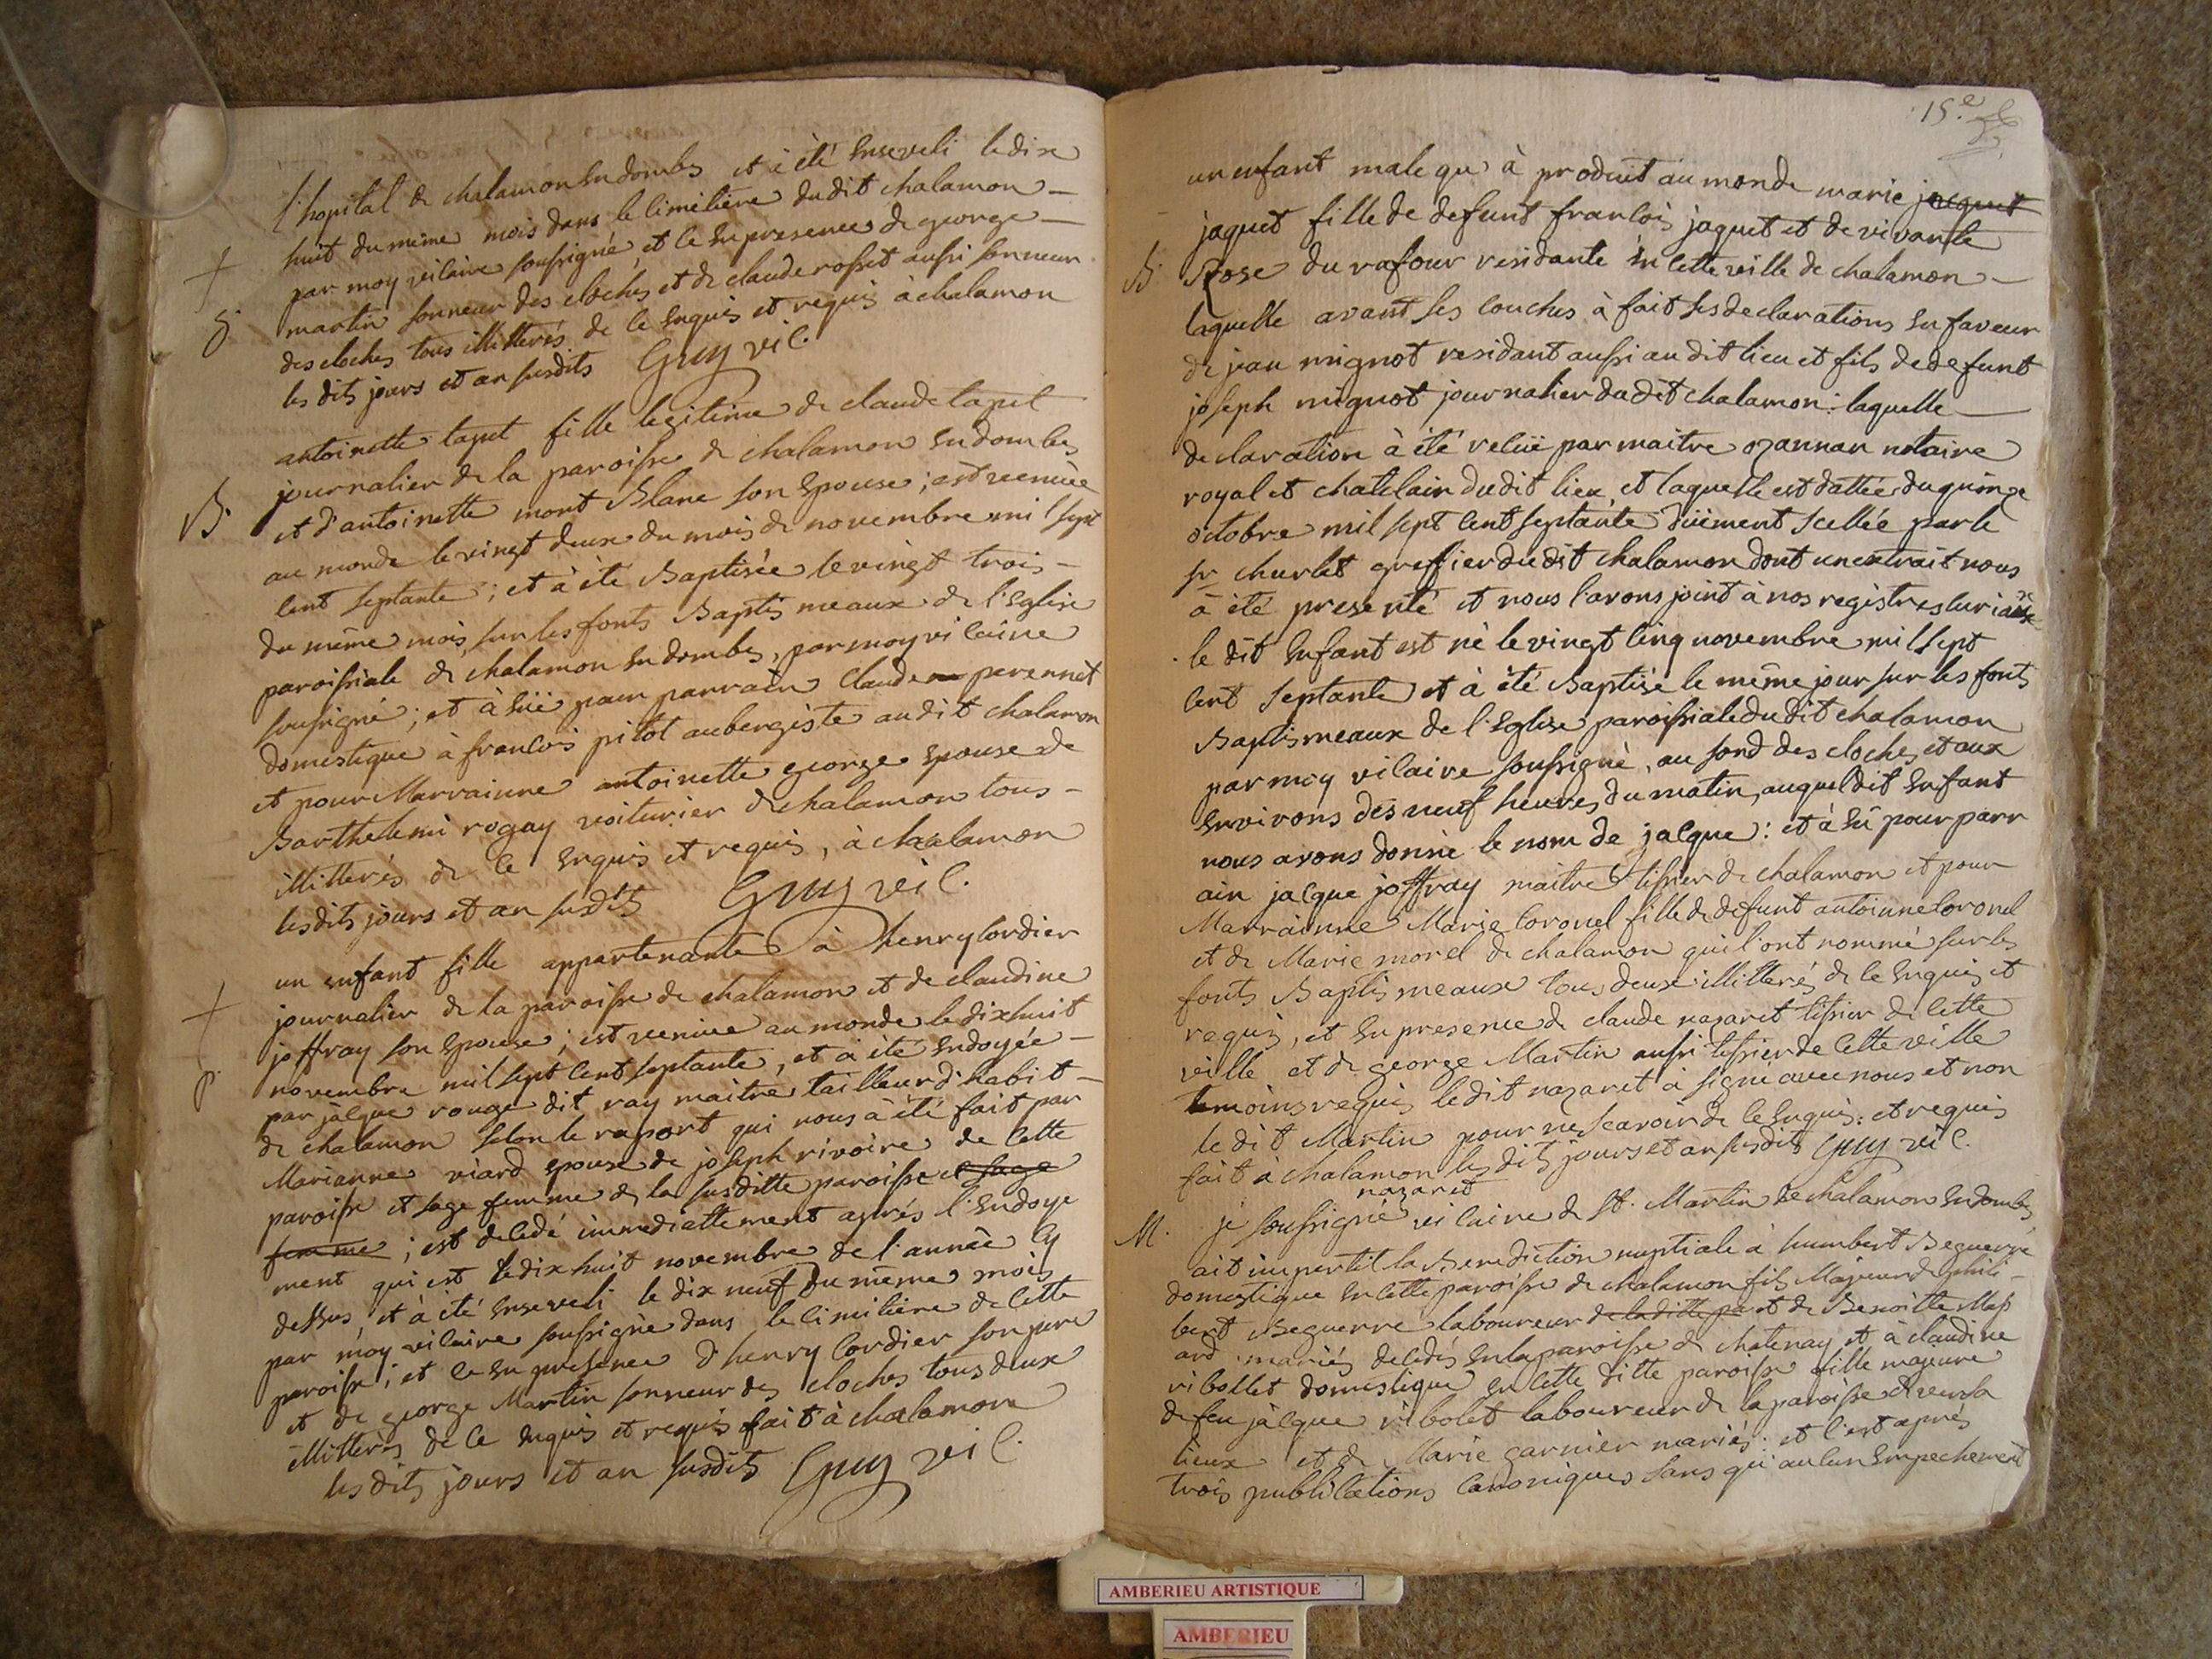 l'hopital de chalamon en dombes et à été enseveli le dix
huit du même mois dans le cimetière dudit chalamon
par moy vicaire soussigné, et ce en presence de george
martin sonneur des cloches et de claude rosset aussi sonneur
des cloches tous illitterés de ce enquis et requis à chalamon
les dits jours et an susdits Guy vic.
antoinette taput fille legitime de claude taput
B. journalier de la paroisse de chalamon en dombes
et d'antoinette mont Blanc son epouse ; est venüe
au monde le vingt deux du mois de novembre mil sept
cent septante ; et à été Baptisée le vingt trois
du même mois, sur les fonts Baptismeaux de l'Eglise
paroissiale de chalamon en dombes, par moy vicaire
soussigné ; et à eüe pour parrain Claude perennet
domestique à francois pitot aubergiste audit chalamon
et pour Marrainne antoinette george epouse de
Barthelemi rogay voiturier de chalamon tous
illitterés de ce enquis et requis, à chalamon
les dits jours et an susdits Guy vic.
un enfant fille appartenante à henry cordier
journalier de la paroisse de chalamon et de claudine
joffray son epouse ; est venüe au monde le dix huit
novembre mil sept cent septante, et à été endoyée
par jacque rouge dit ray maitre tailleur d'habit
de chalamon selon le raport qui nous à été fait par
Marianne viard epouse de joseph rivoire de cette
paroisse et sage femme de la susditte paroisse et sage
femme ; est decedé immediattement aprés l'endoye
ment qui est le dix huit novembre de l'année cy
dessus, et à été enseveli le dix neuf du même mois
par moy vicaire soussigné dans le cimetière de cette
paroisse ; et ce en presence d'henry cordier son pere
et de george Martin sonneur des cloches tous deux
illitterés de ce enquis et requis fait à chalamon
les dits jours et an susdits Guy vic.
15e
un enfant male qu'à produit au monde marie jacquet
jaquet fille de defunt francois jaquet et de vivante
B. Rose du rafour residante en cette ville de chalamon
laquelle avant ses couches à fait ses declarations en faveur
de jean mignot residant aussi audit lieu et fils de defunt
joseph mignot journalier dudit chalamon : laquelle
declaration à été recüe par maitre ozannan notaire
royal et chatelain dudit lieu, et laquelle est dattée du quinze
octobre mil sept cent septante düement scellée par le
sr churlet greffier dudit chalamon dont un extrait nous
à été presenté et nous l'avons joint à nos registres curiaux
le dit enfant est né le vingt cinq novembre mil sept
cent septante et à été Baptisé le même jour sur les fonts
Baptismeaux de l'Eglise paroissiale dudit chalamon
par moy vicaire soussigné, au sond des cloches et aux
environs des neuf heures du matin, auquel dit enfant
nous avons donné le nom de jacque : et à eü pour parr
ain jacque joffray maitre tissier de chalamon et pour
Marrainne Marie Coronel fille de defunt antoinne Coronel
et de Marie morel de chalamon qui l'ont nommé sur les
fonts Baptismeaux tous deux illitterés de ce enquis et
requis, et en presence de claude nazaret tissier de cette
ville et de george Martin aussi tissier de cette ville
temoins requis ledit nazaret à signé avec nous et non
le dit Martin pour ne scavoir de ce enquis : et requis
fait à chalamon les dits jours et an susdits Guy vic.
nazaret
M. je soussigné vicaire de St. Martin de chalamon en dombes
ait imperti la Benediction nuptiale à humbert Beguerre
domestique en cette paroisse de chalamon fils Majeur de phili
bert Beguerre laboureur de la ditte pa et de Benoitte Mass
ard mariés decedés en la paroisse de chatenay et à claudine
ribollet domestique en cette ditte paroisse fille majeure
de feu jacque ribolet laboureur de la paroisse de versa
lieux et de Marie garnier mariés : et c'est aprés
trois publications canoniques sans qu'aucun empechement
AMBERIEU ARTISTIQUE
AMBERIEU